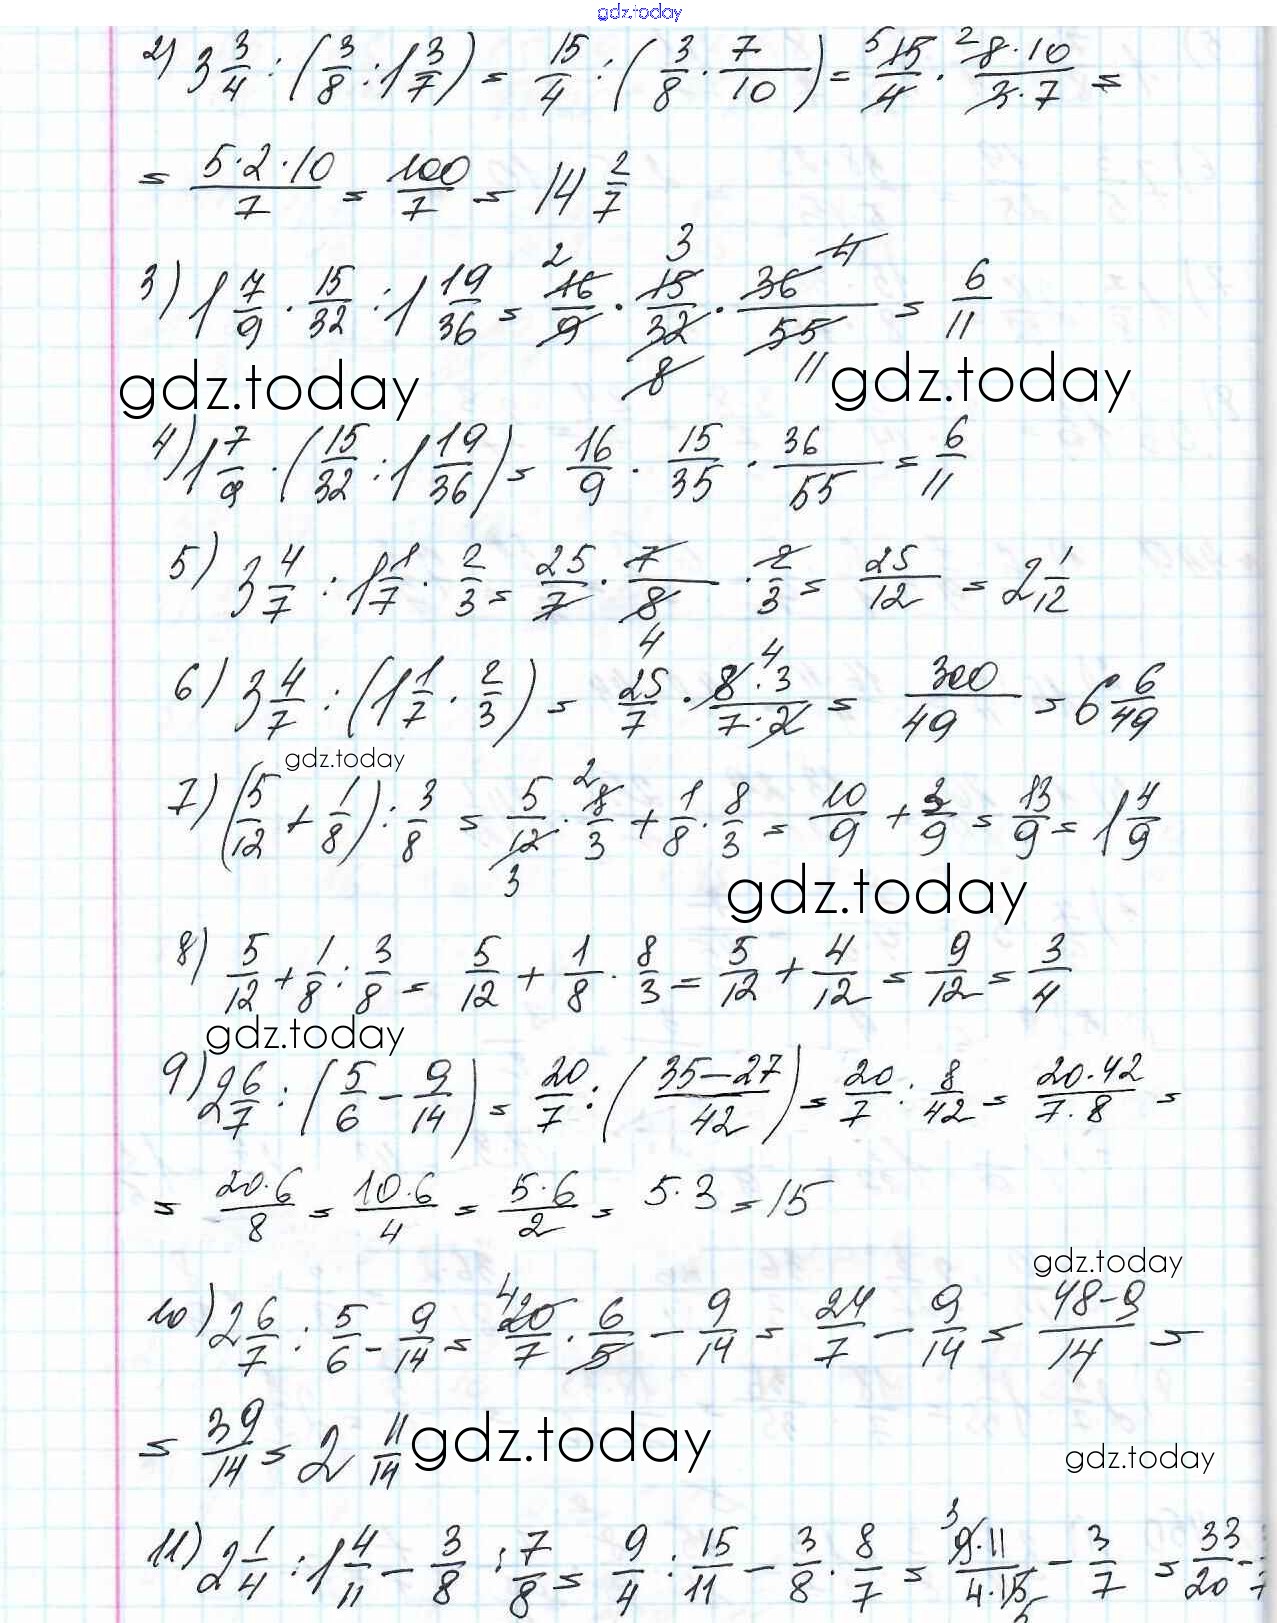 gdz.today
2) 3 3/4 : (3/8 : 1 3/7) = 15/4 : (3/8 · 7/10) = 5 15/4 · 2 8·10/3·7 =
= 5·2·10/7 = 100/7 = 14 2/7
3) 1 7/9 · 15/32 : 1 19/36 = 2 16/9 · 3 15/32 8 · 36 4/55 11 = 6/11
gdz.today gdz.today
4) 1 7/9 · (15/32 : 1 19/36) = 16/9 · 15/35 · 36/55 = 6/11
5) 3 4/7 : 1 1/7 · 2/3 = 25/7 · 7/8 4 · 2/3 = 25/12 = 2 1/12
6) 3 4/7 : (1 1/7 · 2/3) = 25/7 · 8 4·3/7·2 = 300/49 = 6 6/49
gdz.today
7) (5/12 + 1/8) : 3/8 = 5/12 3 · 2 8/3 + 1/8 · 8/3 = 10/9 + 3/9 = 13/9 = 1 4/9
gdz.today
8) 5/12 + 1/8 : 3/8 = 5/12 + 1/8 · 8/3 = 5/12 + 4/12 = 9/12 = 3/4
gdz.today
9) 2 6/7 : (5/6 - 9/14) = 20/7 : (35-27/42) = 20/7 : 8/42 = 20·42/7·8 =
= 20·6/8 = 10·6/4 = 5·6/2 = 5·3 = 15
gdz.today
10) 2 6/7 : 5/6 - 9/14 = 4 20/7 · 6/5 - 9/14 = 24/7 - 9/14 = 48-9/14 =
= 39/14 = 2 11/14 gdz.today
gdz.today
11) 2 1/4 : 1 4/11 - 3/8 : 7/8 = 9/4 : 15/11 - 3/8 · 8/7 = 3 9·11/4·15 5 - 3/7 = 33/20 -